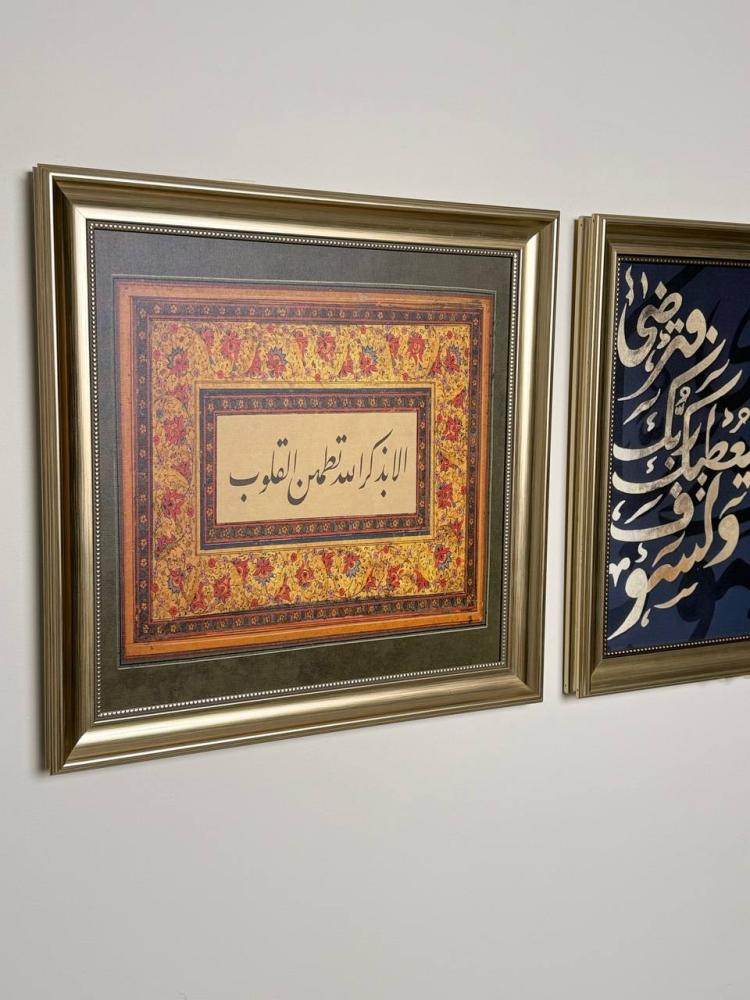 الا بذکر الله تطمئن القلوب
ولسوف
يعطيك ربك
فترضىٰ